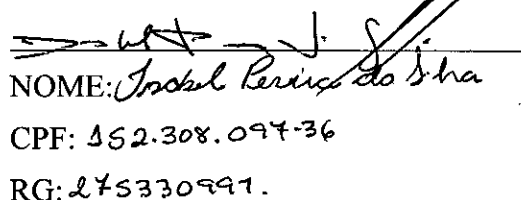 NOME: Isabel Pereira da Silva
CPF: 152.308.097-36
RG: 275330991.